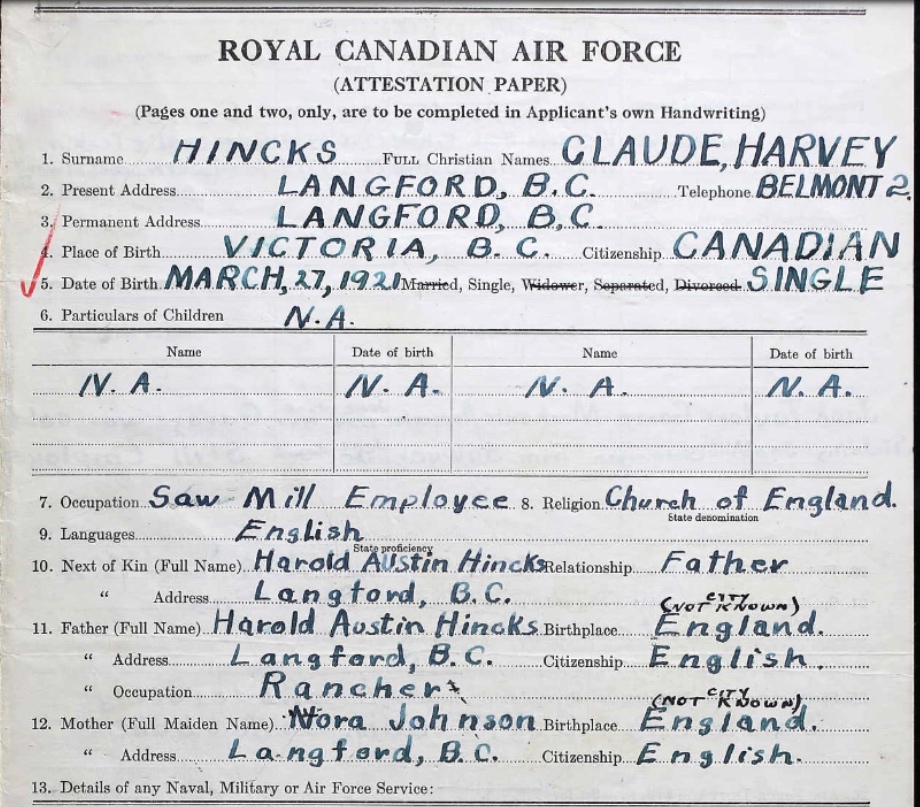 ROYAL CANADIAN AIR FORCE
(ATTESTATION PAPER)
(Pages one and two, only, are to be completed in Applicant's own Handwriting)
1. Surname HINCKS FULL Christian Names CLAUDE, HARVEY
2. Present Address LANGFORD, B.C. Telephone BELMONT 2.
3. Permanent Address LANGFORD, B.C.
4. Place of Birth VICTORIA, B.C. Citizenship CANADIAN
5. Date of Birth MARCH, 27, 1921 Married, Single, Widower, Separated, Divorced SINGLE
6. Particulars of Children N.A.
Name Date of birth Name Date of birth
N. A. N. A. N. A. N. A.
7. Occupation Saw Mill Employee 8. Religion Church of England.
State denomination
9. Languages English
State proficiency
10. Next of Kin (Full Name) Harold Austin Hincks Relationship Father
" Address Langford, B.C.
(NOT CITY KNOWN)
11. Father (Full Name) Harold Austin Hincks Birthplace England.
" Address Langford, B.C. Citizenship English.
" Occupation Rancher
(NOT CITY KNOWN)
12. Mother (Full Maiden Name) Nora Johnson Birthplace England.
" Address Langford, B.C. Citizenship English.
13. Details of any Naval, Military or Air Force Service: